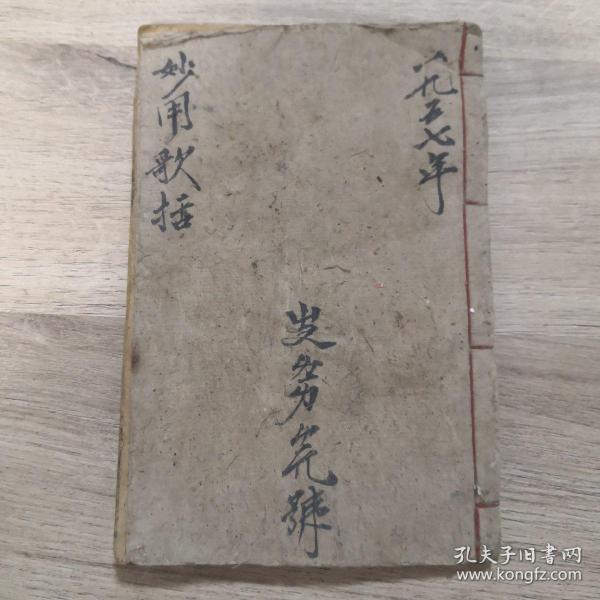 一九五七年
妙用歌括
號
孔夫子旧书网
www.kongfz.com